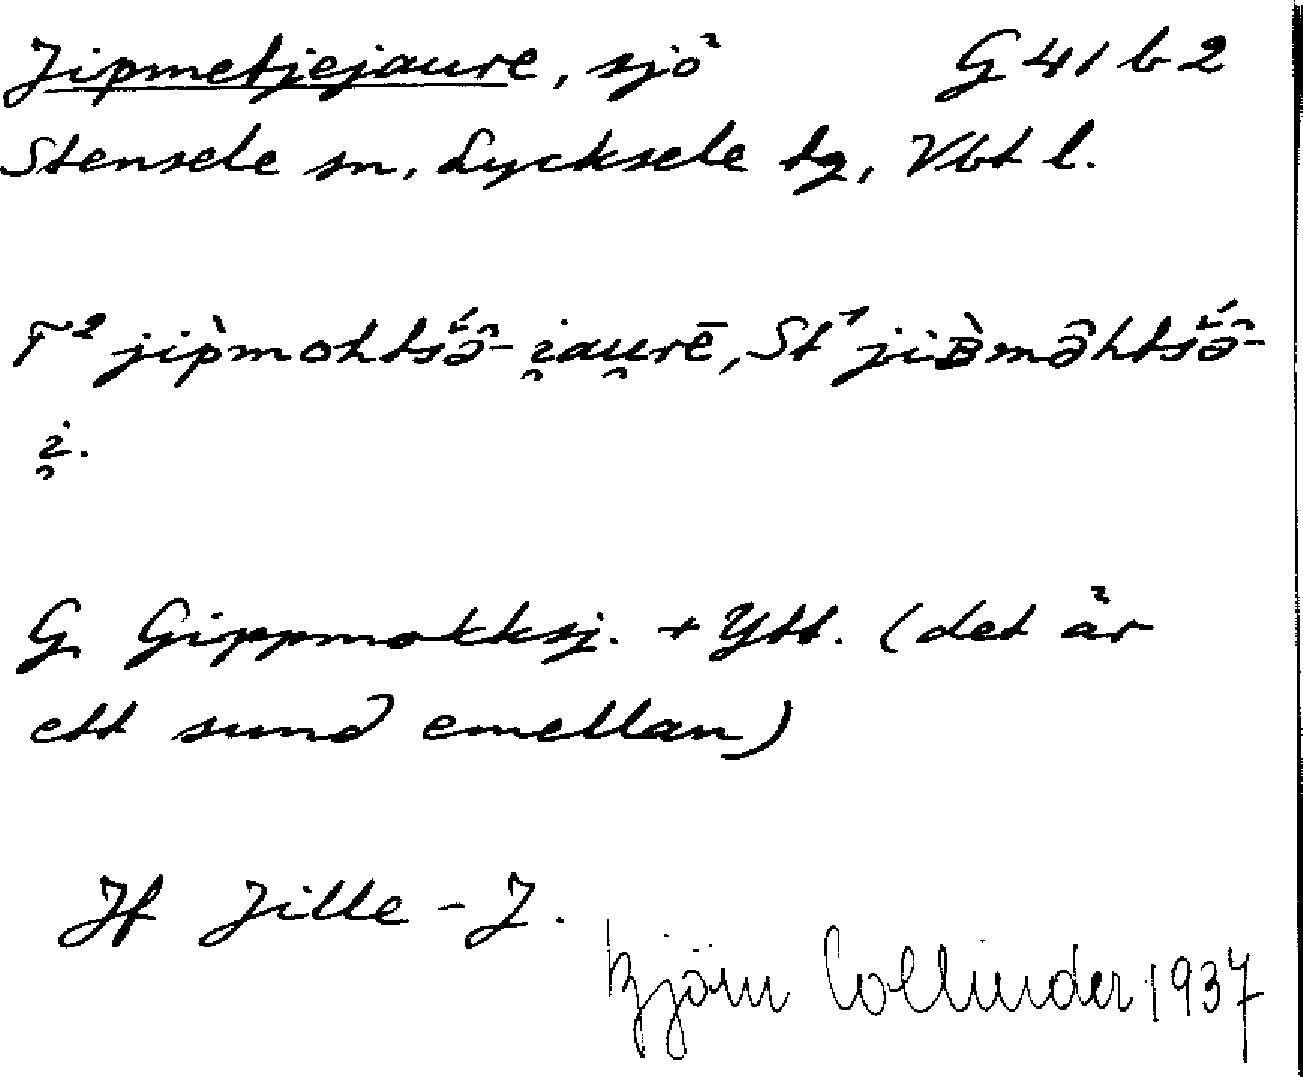 Jipmetjejaure, sjö G 41 b 2
Stensele sn, Lycksele tg, Vbt l.
T² jip̀mohtsə́̑- i̯au̯rē, St¹ jiʙ̀mə̑htsə́̑-
i̯.
G. Gippmokksj. + Ytt. (det är
ett sund emellan)
Jf Jille - J.
Björn Collinder 1937